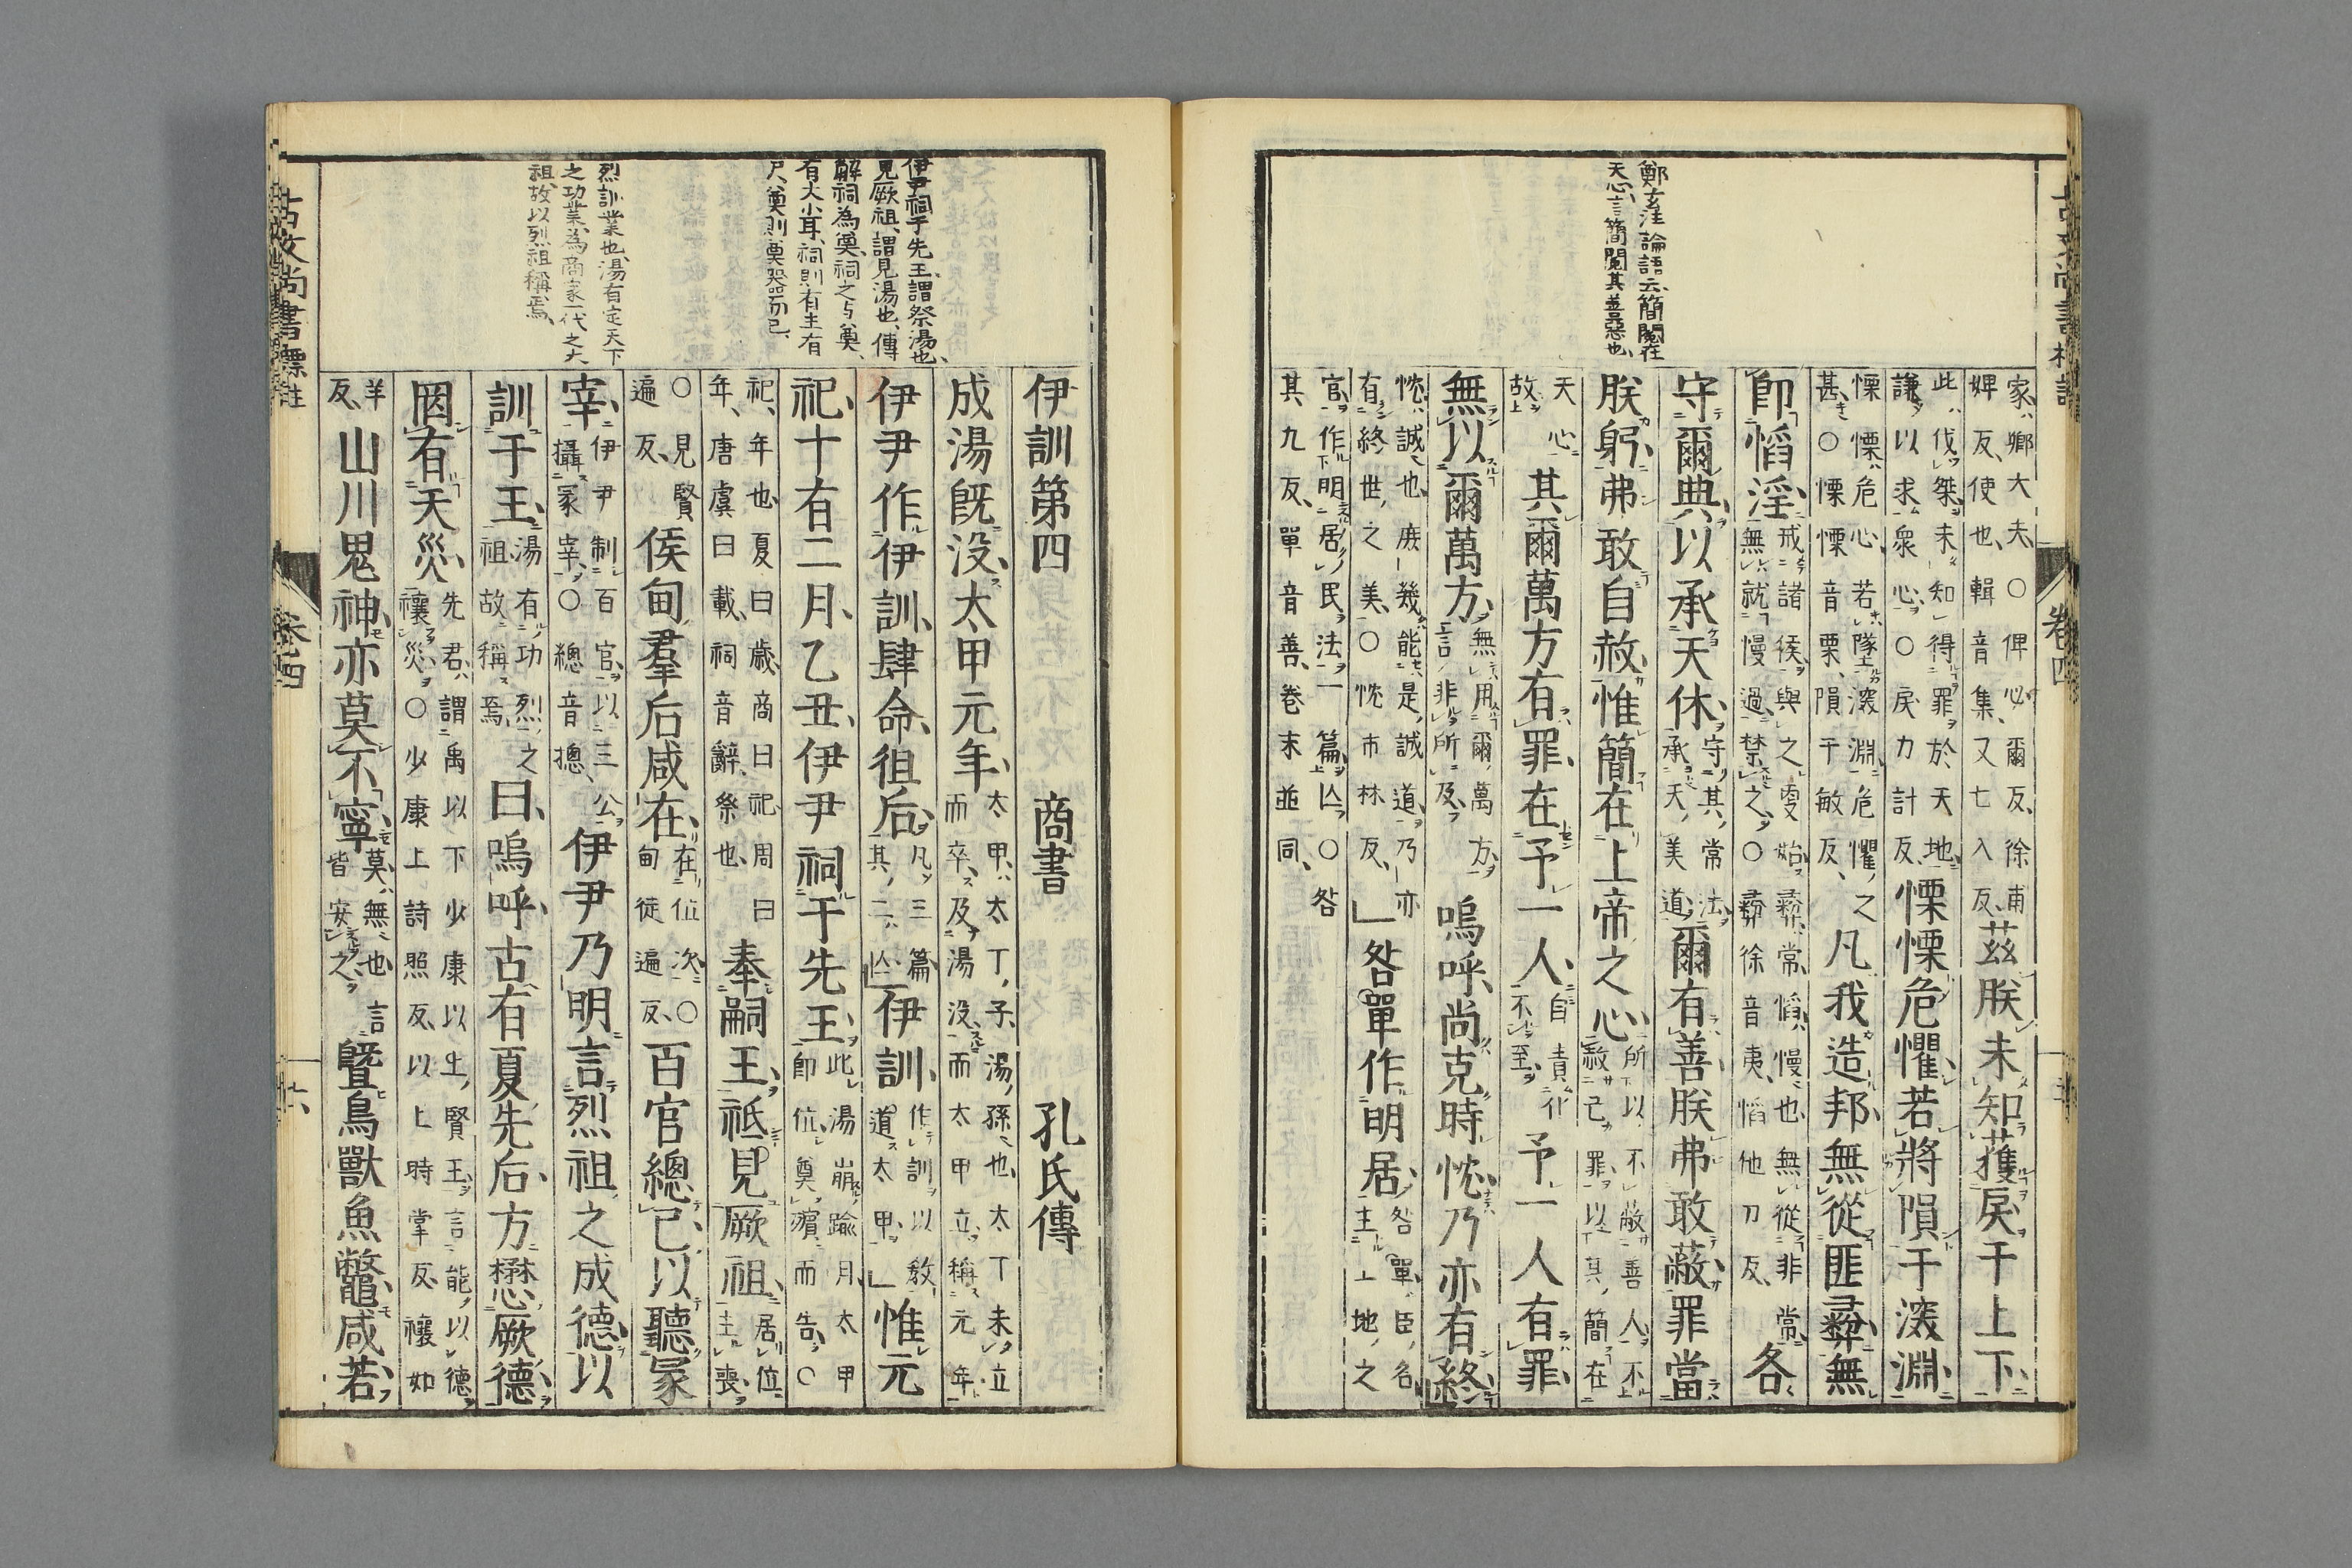 鄭玄注論語云簡閲在
天心言簡閲其善惡也
家卿大夫〇俾必爾反徐甫婢反使也輯音集又七入反茲朕未知獲戾于上下
此伐桀未知得罪於天地謙以求衆心〇戾力計反慄慄危懼若將隕于深淵
慄慄危心若墜深淵危懼之甚〇慄慄音栗隕于敏反凡我造邦無從匪彝無
即慆淫戒諸侯與之更始彝常慆慢也無從非常無就慢過禁之〇彝徐音夷慆他刀反各
守爾典以承天休守其常法承天美道爾有善朕弗敢蔽罪當
朕躬弗敢自赦惟簡在上帝之心所以不蔽善人不赦己罪以其簡在
天心故其爾萬方有罪在予一人自責化不至予一人有罪
無以爾萬方無用爾萬方言非所及嗚呼尚克時忱乃亦有終
忱誠也庶幾能是誠道乃亦有終世之美〇忱市林反咎單作明居咎單臣名主土地之
官作明居民法一篇亾〇咎其九反單音善卷末並同
卷四
伊尹祠于先王謂祭湯也
見厥祖謂見湯也傳
解祠為奠祠之与奠
有大小耳祠則有主有
尸奠則奠器而已
烈訓業也湯有定天下
之功業為商家一代之大
祖故以烈祖稱焉
伊訓第四 商書 孔氏傳
成湯既没太甲元年太甲太丁子湯孫也太丁未立而卒及湯没而太甲立稱元年
伊尹作伊訓肆命徂后凡三篇其二亾伊訓作訓以教道太甲惟元
祀十有二月乙丑伊尹祠于先王此湯崩踰月太甲即位奠殯而告〇
祀年也夏曰歳商曰祀周曰年唐虞曰載祠音辭祭也奉嗣王祗見厥祖居位主喪
〇見賢遍反侯甸羣后咸在在位次〇甸徒遍反百官總已以聽冢
宰伊尹制百官以三公攝冢宰〇總音摠伊尹乃明言烈祖之成德以
訓于王湯有功烈之祖故稱焉曰嗚呼古有夏先后方懋厥德
罔有天災先君謂禹以下少康以上賢王言能以德禳災〇少康上詩照反以上時掌反禳如
羊反山川鬼神亦莫不寧莫無也言皆安之曁鳥獸魚鼈咸若
古文尚書標註
卷四